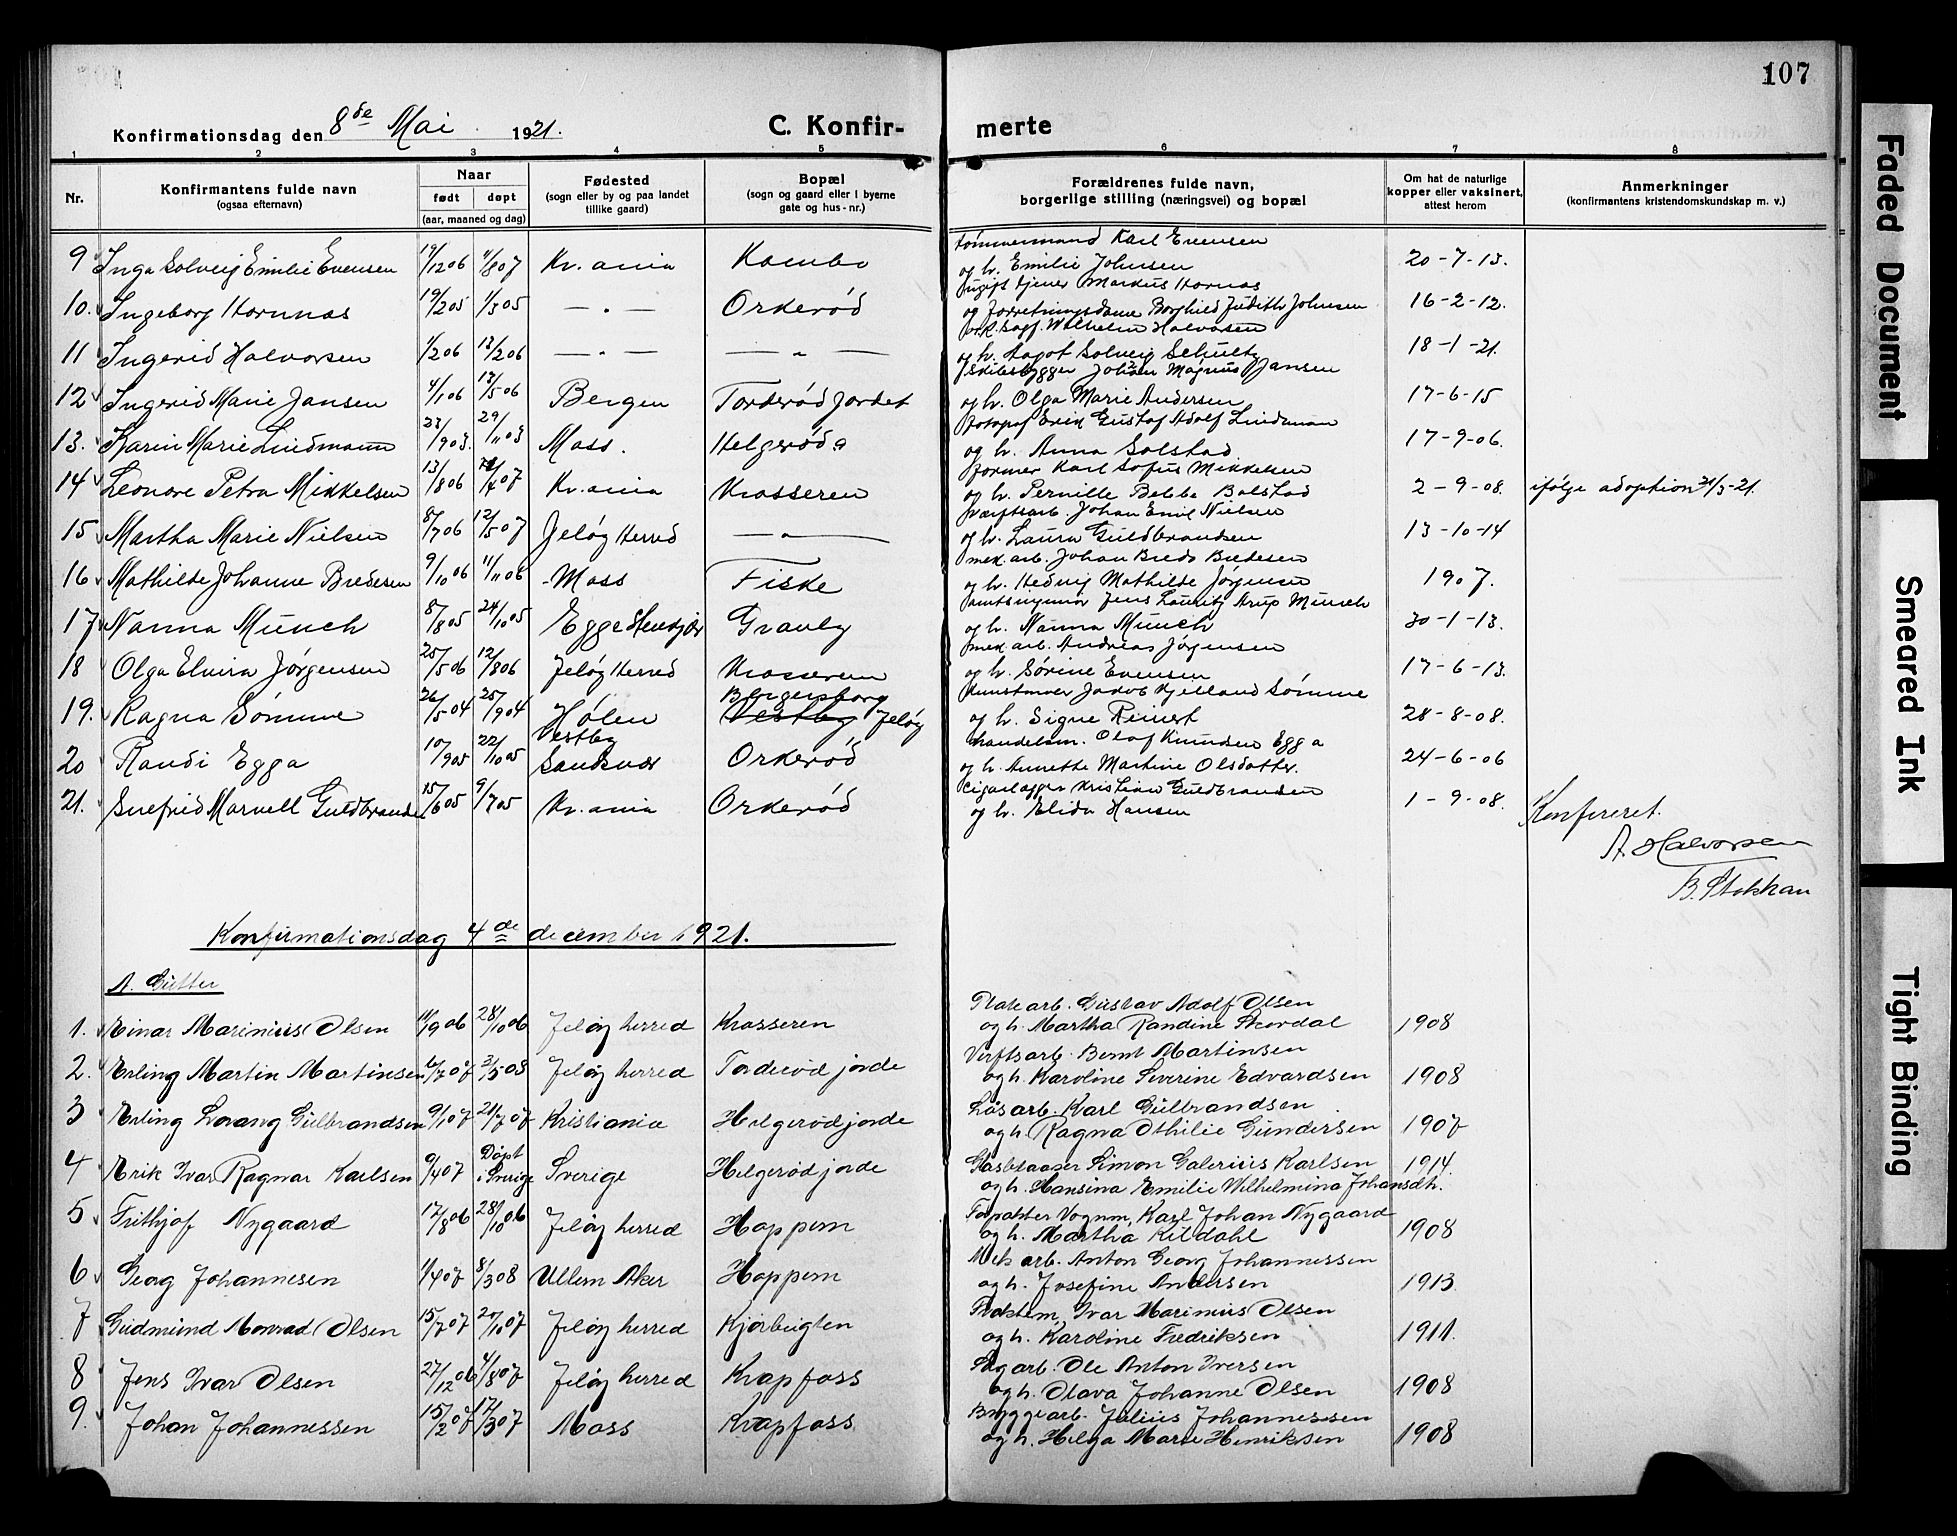 107
Konfirmationsdag den 8de Mai 1921.
C. Konfir- merte
1 2 3 4 5 6 7 8
Nr.
Konfirmantens fulde navn
(ogsaa efternavn)
Naar
født døpt
(aar, maaned og dag)
Fødested
(sogn eller by og paa landet
tillike gaard)
Bopæl
(sogn og gaard eller i byerne
gate og hus-nr.)
Forældrenes fulde navn,
borgerlige stilling (næringsvei) og bopæl
Om hat de naturlige
kopper eller vaksinert,
attest herom
Anmerkninger
(konfirmantens kristendomskundskap m. v.)
9 Inga Solveig Emilie Evensen 19/12 06 11/8 07 Kr.ania Kambo tømmermand Karl Evensen
og h. Emilie Johnsen 20-7-13.
10. Ingeborg Hornnas 19/2 05 1/3 05 — " — Orkerød ugift tjener Markus Hornas
og Forretningsdame Borghild Judith Johnsen 16-2-12.
11 Ingerid Halvorsen 1/2 06 13/2 06 — " — — " — Wilhelm Halvorsen
og h. Aagot Solveig Schultz 18-1-21.
12 Ingerid Marie Jansen 4/1 06 13/5 06 Bergen Torderød Jordet Skibsbygger Johan Magnus Jansen
og h. Olga Marie Andersen 17-6-15
13. Karin Marie Lindmann 23/9 03. 29/11 03 Moss. Helgerød Fotograf Erik Gustaf Adolf Lindman
og h. Anna Solstad 17-9-06.
14 Leonore Petra Mikkelsen 13/8 06 07 Kr.ania Krosseren former Karl Sofus Mikkelsen
og h. Pernille Bolstad 2-9-08. ifølge adoption 31/3-21.
15 Martha Marie Nielsen 8/7 06 12/5 07 Jeløy Herred — " — Værftsarb. Johan Emil Nielsen
og h. Laura Guldbrandsen 13-10-14
16 Mathilde Johanne Bredesen 9/10 06 11/11 06 Moss Fiske mek. arb. Johan Bredo Bredesen
og h. Hedvig Mathilde Jørgensen 1907.
17 Nanna Münch 8/8 05 24/10 05 Egge Stenkjær Grønly amtsingeniør Jens Lauritz Arup Münch
og h. Nanna Münch 30-1-13.
18 Olga Elvira Jørgensen 25/5 06 12/8 06 Jeløy Herred Krosseren mek. arb. Andreas Jørgensen
og h. Sørine Evensen 17-6-13.
19. Ragna Sømme 26/5 04 25/9 04 Hølen Vestby Bergersborg Vestby Jeløy Kunstmaler Jakob Kjelland Sømme
og h. Signe Reinert 28-8-08.
20 Randi Egga 10/9 05 22/10 05 Sandsvær Orkerød Handelsm. Olaf Knudsen Egga
og h. Annette Martine Olsdatter. 24-6-06
21. Snefrid Marvell Guldbrandsen 15/6 05 9/7 05 Kr.ania Orkerød Cigarlagger Kristian Guldbrandsen
og h. Elida Hansen 1-9-08.
Konfereret.
A. Halvorsen
B. Stokkan
Konfirmationsdag 4de december 1921.
A. Gutter
1. Einar Marinius Olsen 11/9 06 28/10 06 Jeløy herred Krosseren Platearb. Gustav Adolf Olsen
og h. Martha Randine Skordal 1908
2. Erling Martin Martinsen 6/7 07 3/5 08 Jeløy herred Torderød jorde Verftsarb. Bernt Martinsen
og h. Karoline Severine Edvardsen 1908
3 Erling Lorang Gulbrandsen 9/1 07 21/7 07 Kristiania Helgerødjorde Løsarb. Karl Gulbrandsen
og h. Ragna Othilie Gundersen 1907
4 Erik Ivar Ragnar Karlsen 9/4 07 Døpt i Sverige Sverige Helgerødjorde Glasblaaser Simon Galerius Karlsen 1914
og h. Hansina Emilie Wilhelmina Johansdt.
5 Frithjof Nygaard 17/8 06 28/10 06 Jeløy herred Hoppern Forpakter Vognm. Karl Johan Nygaard
og h. Martha Kildahl 1908
6 Georg Johannesen 1/4 07 8/3 08 Ullern Aker Hoppern Mek arb. Anton Georg Johannessen
og h. Josefine Andersen 1913
7 Gudmund Konrad Olsen 15/7 07 20/10 07 Jeløy herred Kjørbugten Ivar Marinius Olsen
og h. Karoline Fredriksen 1911.
8 Jens Ivar Olsen 27/12 06 4/8 07 Jeløy herred Krapfoss Sagarb. Ole Anton Iversen
og h. Olava Johanne Olsen 1908
9. Johan Johannessen 15/2 07 17/3 07 Moss Krapfoss Bryggearb. Julius Johannessen
og h. Helga Marie Henriksen 1908
Faded Document
Smeared Ink
Tight Binding